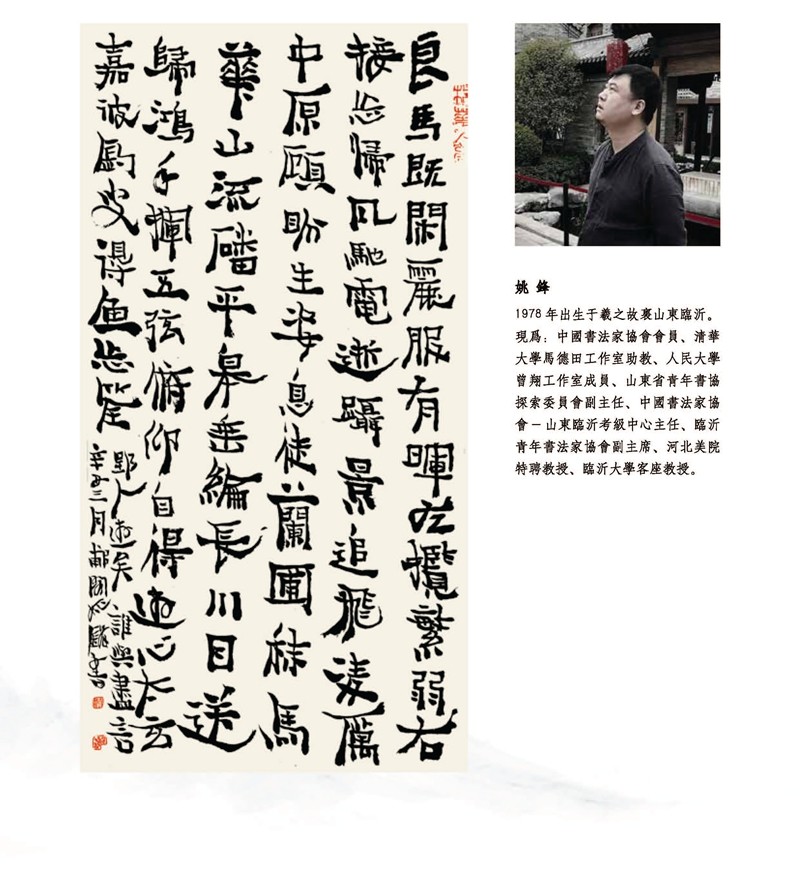 良馬既閑麗服有暉左攬繁弱右
接忘歸風馳電逝躡景追飛凌厲
中原顧盼生姿息徒蘭圃秣馬
華山流磻平皋垂綸長川目送
歸鴻手揮五弦俯仰自得遊心太玄
嘉彼釣叟得魚忘筌
郢人逝矣誰與盡言
辛丑三月姚鋒書
姚鋒
1978年出生于羲之故裏山東臨沂。
現爲：中國書法家協會會員、清華
大學馬德田工作室助教、人民大學
曾翔工作室成員、山東省青年書協
探索委員會副主任、中國書法家協
會－山東臨沂考級中心主任、臨沂
青年書法家協會副主席、河北美院
特聘教授、臨沂大學客座教授。